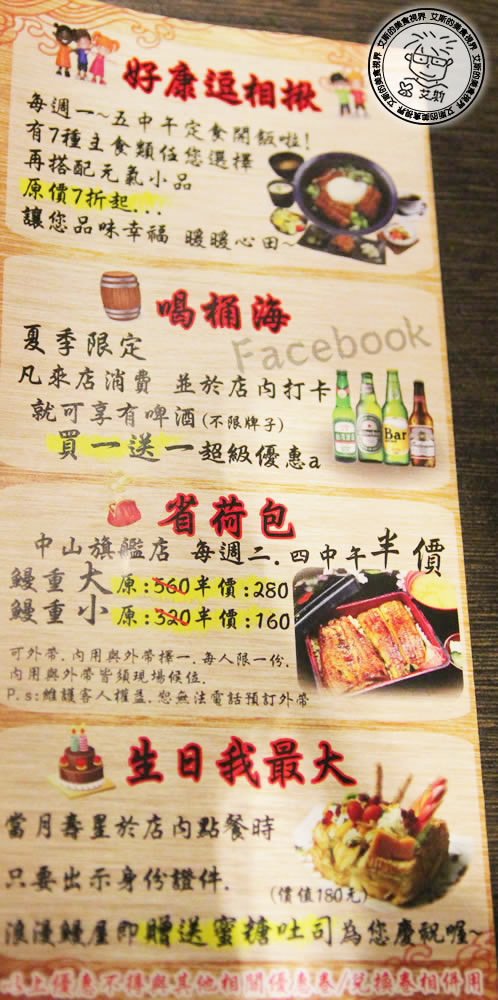 艾斯的美食視界 艾斯的美食視界 艾斯的美食視界 艾斯的美食視界
艾斯
好康逗相揪
每週一~五中午定食開飯啦!
有7種主食類任您選擇
再搭配元氣小品
原價7折起...
讓您品味幸福 暖暖心田~
喝桶海
Facebook
夏季限定
凡來店消費 並於店內打卡
就可享有啤酒(不限牌子)
買一送一超級優惠a
Bar
省荷包
中山旗艦店 每週二.四中午半價
鰻重大 原:560半價:280
鰻重小 原:320半價:160
可外帶.內用與外帶擇一.每人限一份.
內用與外帶皆須現場候位.
P.s:維護客人權益.您無法電話預訂外帶
生日我最大
當月壽星於店內點餐時
只要出示身份證件.
(價值180元)
浪漫鰻屋即贈送蜜糖吐司為您慶祝喔~
以上優惠不得與其他相關優惠卷/兌換卷相併用